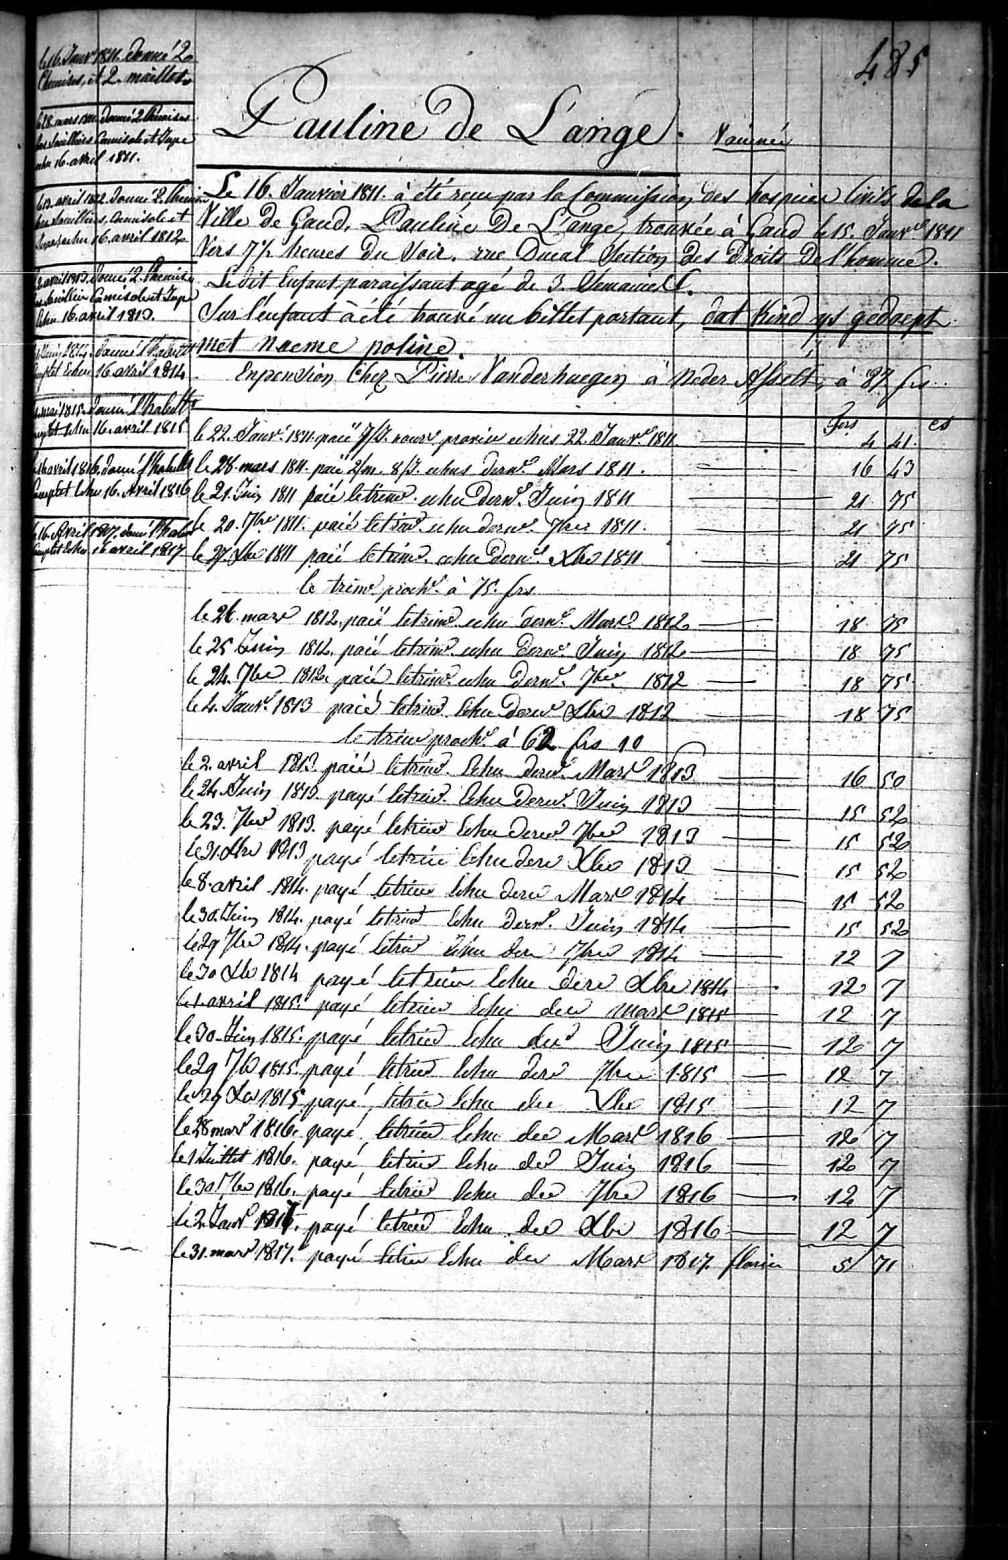 485
Pauline de L'ange. Vaccinée
le 16. Janvr 1811. donné 2
Chemises, et 2. maillots
le 28 mars 1811 donné 2 Chemises
Camisole et Jupe
echu 16. avril 1811.
avril 1812. donné 2. Chemises
Camisole et
Jupe echu 16. avril 1812
avril 1813. donné 2. Chemises
Camisole et Jupe
Echu 16. avril 1813.
Juin 1814. donné 1 habill
complet Echu 16 avril 1814
mai 1815. donné 1 habillt
complet echu 16. avril 1815
avril 1816. donné 1 habillt
Complet Echu 16. Avril 1816
le 16. Avril 1817. donné 1 habillt
Complet Echu 16 avril 1817
Le 16. Janvier 1811. à été reçu par la Commission des hospices Civils de la
Ville de Gand, Pauline De L'ange, trouvée à Gand le 15. Janvr 1811
Vers 7½ heures du Soir. rue Ducal Section des Droits De l'homme.
Le dit Enfant paraissant agé de 3. Semaines.
Sur l'enfant à été trouvé un billet portant, dat kind ys gedoept
met naeme poline.
En pension Chez Pierre Vanderhaegen à neder Asselt, à 87 frs.
frs cs
le 22. Janvr 1811. paié echus 22. Janvr 1811 4 41
le 28 mars 1811. paié 2/m. 8/J. echus dernr Mars 1811. 16 43
le 21. Juin 1811 paié le trimr echu dernr Juin 1811 21 75
le 20. 7bre 1811. paié le trimr echu dernr 7bre 1811. 21 75
le 27. Xbre 1811 paié le trimr echu dernr Xbre 1811 21 75
le trimr prochn à 75. frs
le 26. mars 1812. paié le trimr echu dernr Mars 1812 18 75
le 25 Juin 1812. paié le trimr echu dernr Juin 1812 18 75
le 24. 7bre 1812. paié le trimr echu dernr 7bre 1812 18 75
le 4. Janvr 1813 paié le trimr Echu dernr Xbre 1812 18 75
le trimr prochn à 62 frs 10
le 2. avril 1813. paié le trimr Echu dernr Mars 1813 16 50
le 24. Juin 1813. payé le trimr Echu dernr Juin 1813 15 52
le 23. 7bre 1813. payé le trimr Echu dernr 7bre 1813 15 52
le 31. Xbre 1813 payé le trim Echu der Xbre 1813 15 52
le 8. avril 1814. payé le trim Echu der Mars 1814 15 52
le 30. Juin 1814. payé le trimr Echu dernr Juin 1814 15 52
le 29 7bre 1814. payé le trim Echu der 7bre 1814 12 7
le 30 Xbre 1814 payé le trim Echu der Xbre 1814 12 7
le 1. avril 1815. payé le trim Echu der mars 1815 12 7
le 30. Juin 1815. payé le trim Echu der Juin 1815 12 7
le 29 7bre 1815. payé le trim Echu der 7bre 1815 12 7
le 29 Xbre 1815 payé le trim Echu der Xbre 1815 12 7
le 28 mars 1816. payé le trim Echu der Mars 1816 12 7
le 1 Juillet 1816. payé le trim Echu der Juin 1816 12 7
le 30 7bre 1816. payé le trim Echu der 7bre 1816 12 7
le 2. Janvr 1817. payé le trim Echu der Xbre 1816 12 7
le 31. mars 1817. payé le trim Echu der Mars 1817 florins 5 71